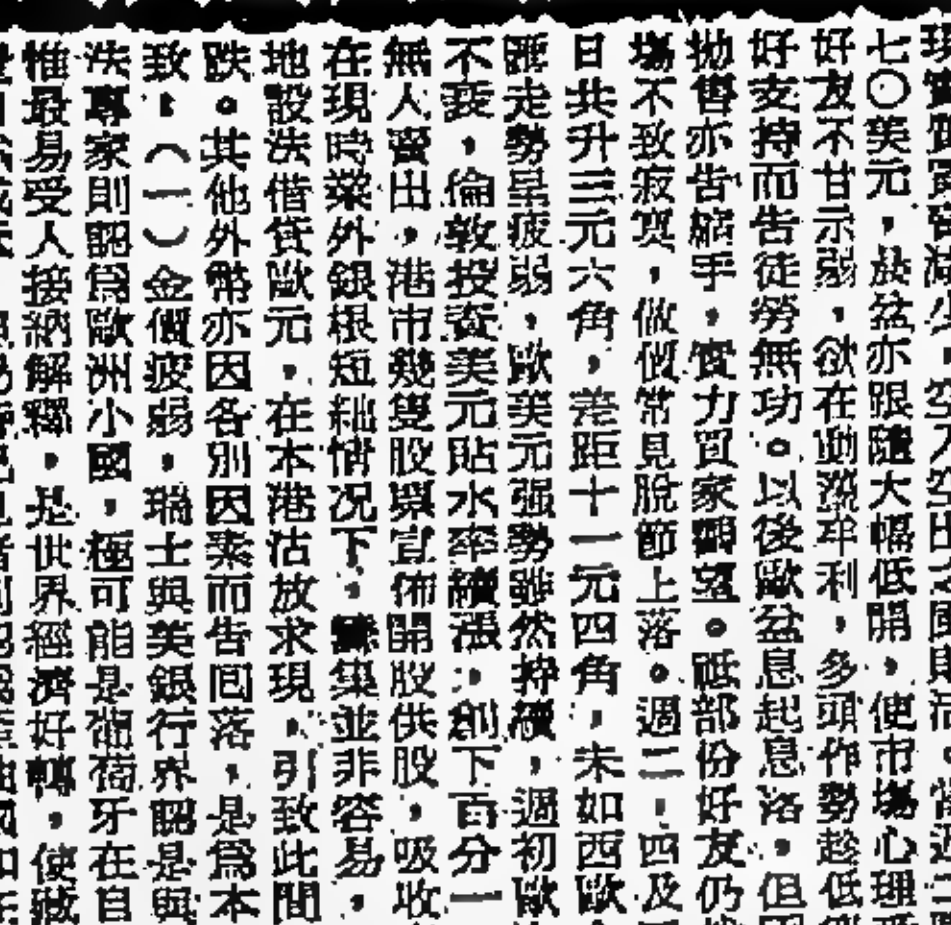 七〇美元，於盆亦跟隨大幅低開，使市場心理
好友不甘示弱，欲在動盪牟利，多頭作勢趁低
好支持而告徒勞無功。以後歐盆息起息落，但
拋售亦告縮手，實力買家觀望。祗部份好友仍
場不致寂寞，做價常見脫節上落。週二，四及
日共升三元六角，差距十一元四角，未如西歐
匯走勢呈疲弱，歐美元强勢雖然持續，週初歐
不衰，倫敦投資美元貼水率續漲，創下百分一
無人賣出，港市幾隻股票宣佈開股供股，吸收
在現時業外銀根短絀情况下，籌集並非容易，
地設法借貸歐元，在本港沽放求現，引致此間
跌。其他外幣亦因各別因素而告回落，是爲本
致：（一）金價疲弱，瑞士與美銀行界認是與
法專家則認爲歐洲小國，極可能是葡萄牙在自
惟最易受人接納解釋，是世界經濟好轉，使藏